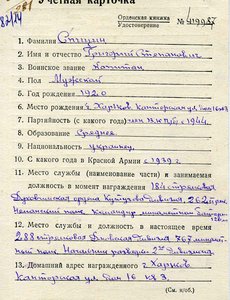 Учетная карточка
Орденская книжка
Удостоверение №
1. Фамилия Спицин
2. Имя и отчество Григорий Степанович
3. Воинское звание Капитан
4. Пол Мужской
5. Год рождения 1920
6. Место рождения г. Харьков Конторская ул.
7. Партийность (с какого года) член ВКП(б) с 1944
8. Образование Среднее
9. Национальность украинец
10. С какого года в Красной Армии с 1939 г.
11. Место службы (наименование части) и занимаемая
должность в момент награждения 184 стрелковая
Духовщинская ордена Кутузова дивизия, 262 стр.
Неманский полк Командир минометной
12. Место службы и должность в настоящее время
288 стрелковая дивизия
полк Начальник разведки дивизиона
13. Домашний адрес награжденного г. Харьков
Конторская ул. Дом 16 кв 3.
(См. н/об.)